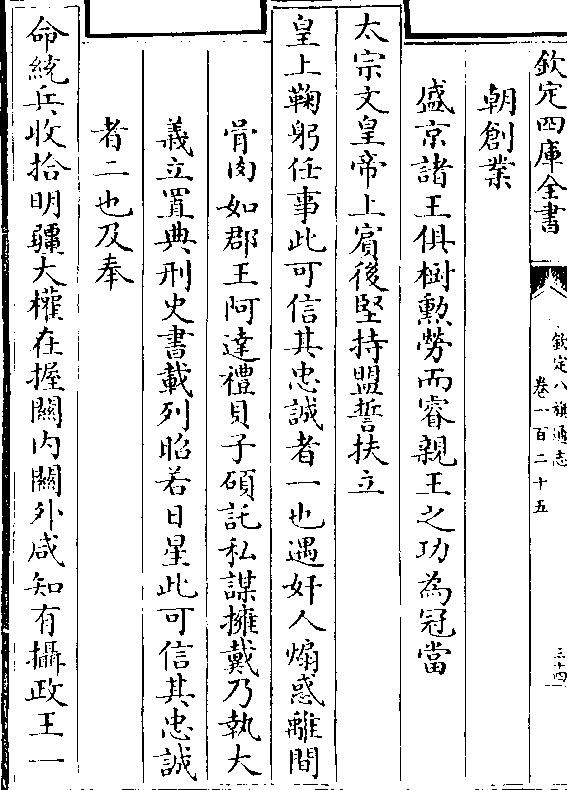 欽定四庫全書
欽定八旗通志
卷一百二十五
三十四
朝創業
盛京諸王俱樹勲勞而睿親王之功為冠當
太宗文皇帝上賔後堅持盟誓扶立
皇上鞠躬任事此可信其忠誠者一也遇奸人煽惑離間
骨肉如郡王阿達禮貝子碩託私謀擁戴乃執大
義立置典刑史書載列昭若日星此可信其忠誠
者二也及奉
命統兵收拾明疆大權在握關内關外咸知有攝政王一